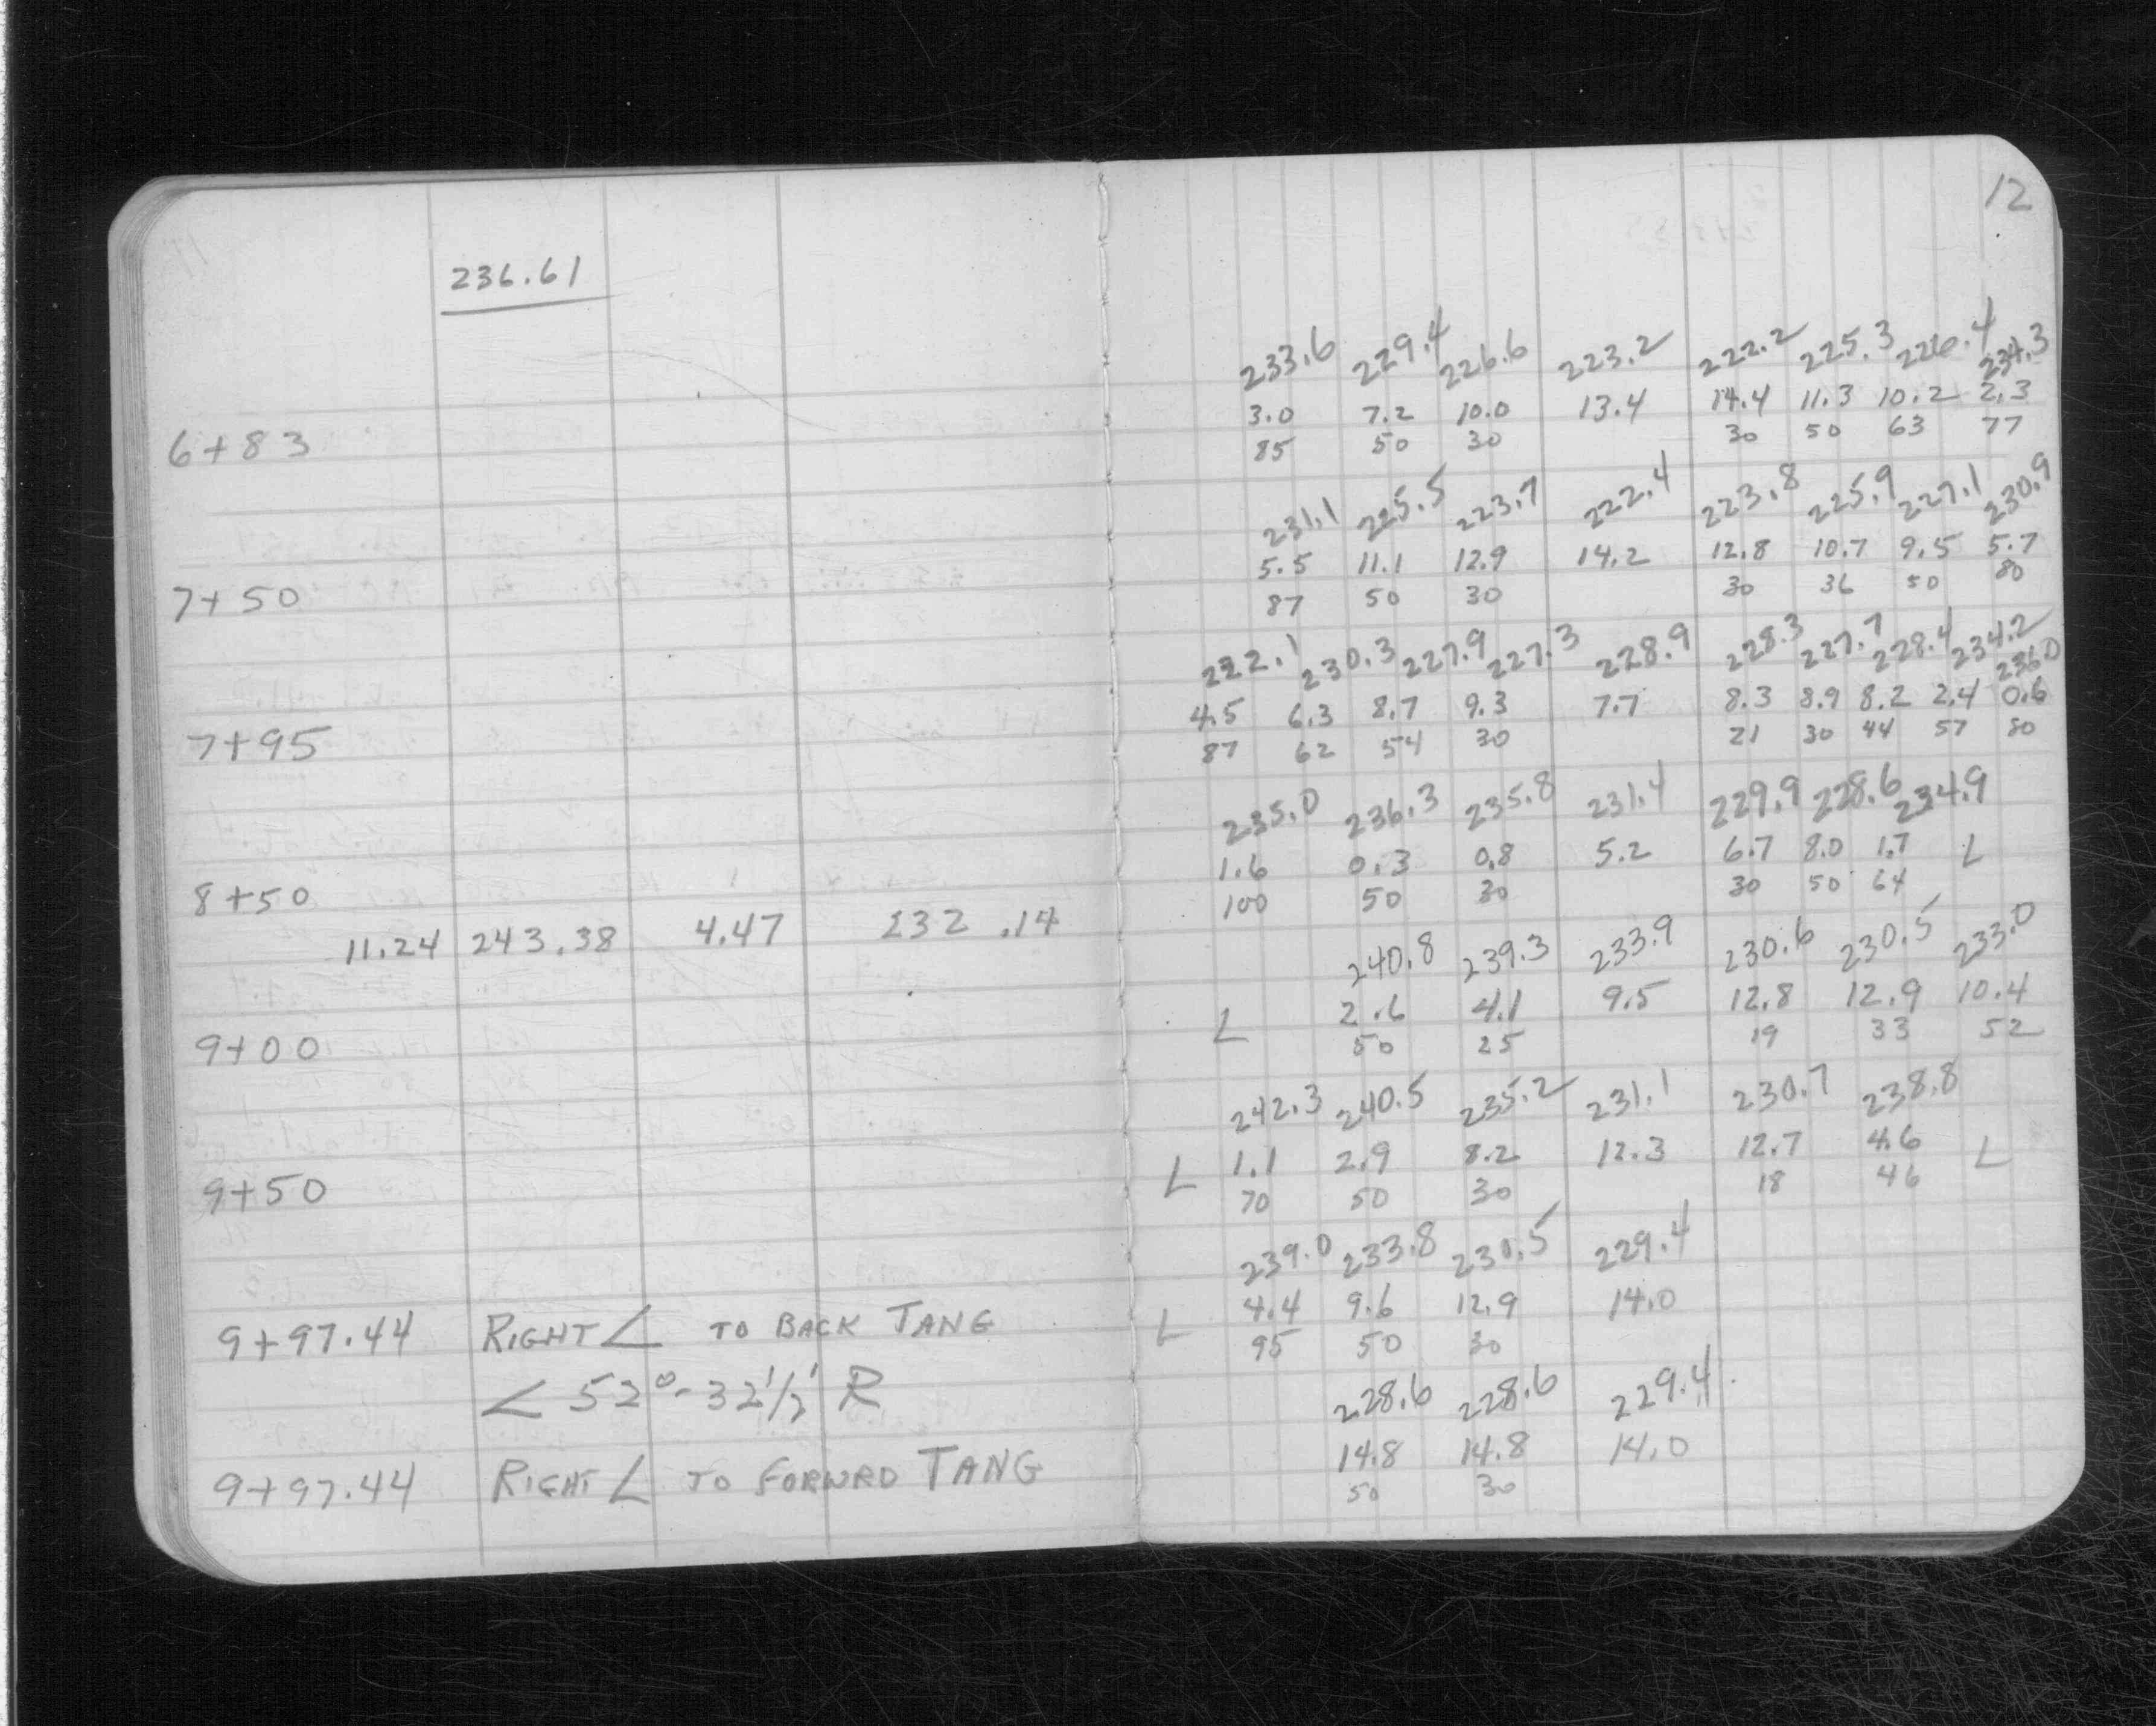 12
236.61
233.6 229.4 226.6 223.2 222.2 225.3 226.4 234.3
3.0 7.2 10.0 13.4 14.4 11.3 10.2 2.3
6+83 85 50 30 30 50 63 77
231.1 225.5 223.7 222.4 223.8 225.9 227.1 230.9
5.5 11.1 12.9 14.2 12.8 10.7 9.5 5.7
7+50 87 50 30 30 36 50 80
232.1 230.3 227.9 227.3 228.9 228.3 227.7 228.4 234.2 236.0
4.5 6.3 8.7 9.3 7.7 8.3 8.9 8.2 2.4 0.6
7+95 87 62 54 30 21 30 44 57 80
235.0 236.3 235.8 231.4 229.9 228.6 234.9
1.6 0.3 0.8 5.2 6.7 8.0 1.7 L
8+50 100 50 30 30 50 64
11.24 243.38 4.47 232.14
240.8 239.3 233.9 230.6 230.5 233.0
L 2.6 4.1 9.5 12.8 12.9 10.4
9+00 50 25 19 33 52
242.3 240.5 235.2 231.1 230.7 238.8
L 1.1 2.9 8.2 12.3 12.7 4.6 L
9+50 70 50 30 18 46
239.0 233.8 230.5 229.4
L 4.4 9.6 12.9 14.0
9+97.44 RIGHT ∠ TO BACK TANG 95 50 30
∠ 52°-32 1/2' R 228.6 228.6 229.4
14.8 14.8 14.0
9+97.44 RIGHT ∠ TO FORWRD TANG 50 30